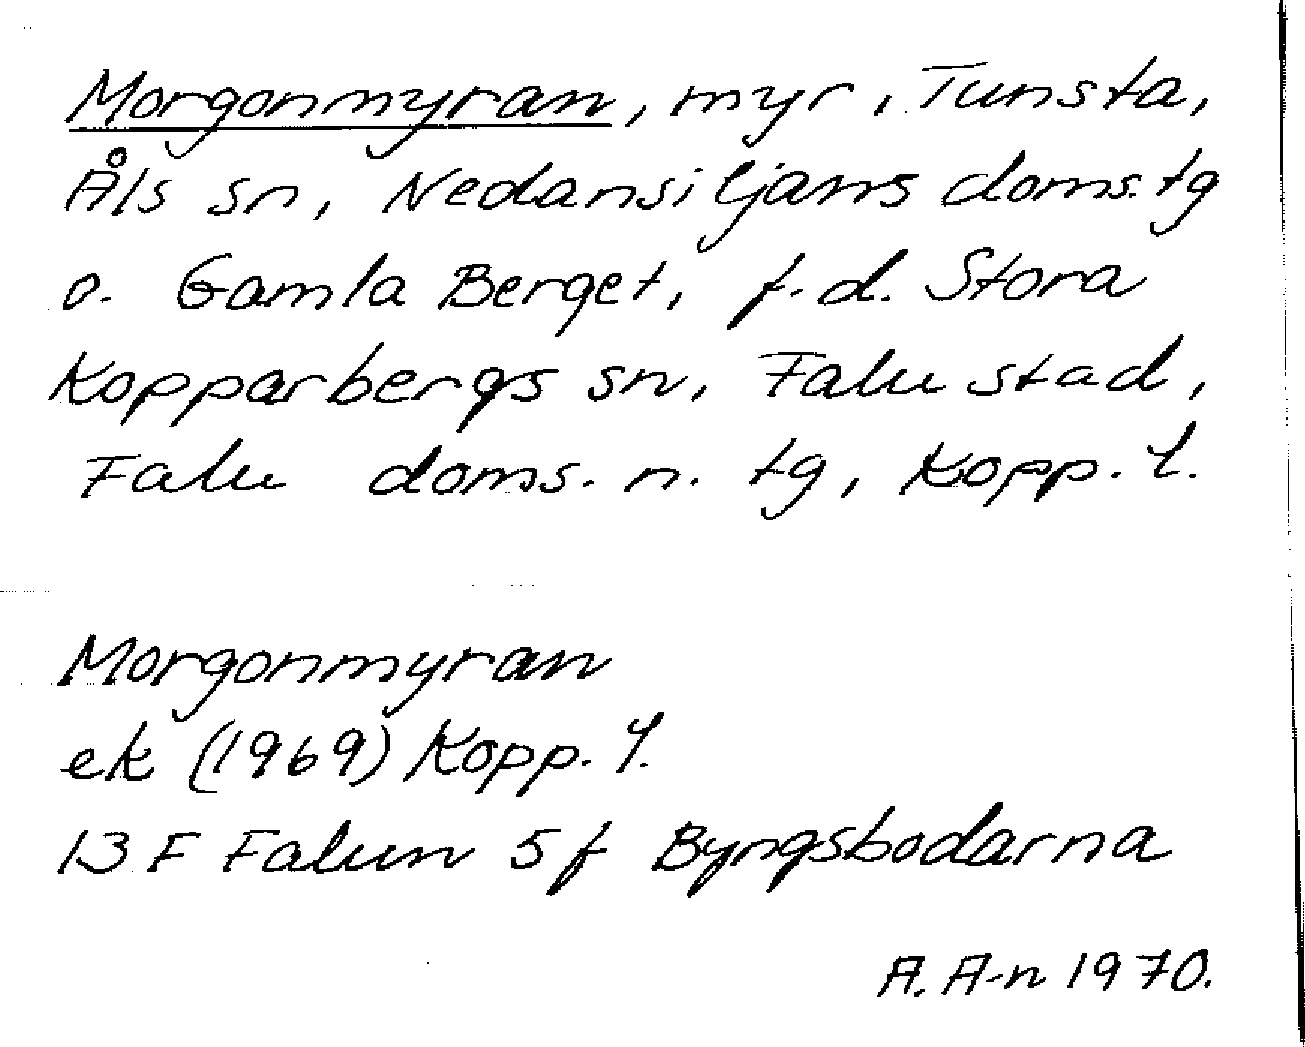 Morgonmyran, myr, Tunsta,
Åls sn, Nedansiljans doms.tg
o. Gamla Berget, f.d. Stora
Kopparbergs sn, Falu stad,
Falu doms. n. tg, Kopp. l.
Morgonmyran
ek (1969) Kopp. l.
13 F Falun 5 f Byngsbodarna
A. A-n 1970.